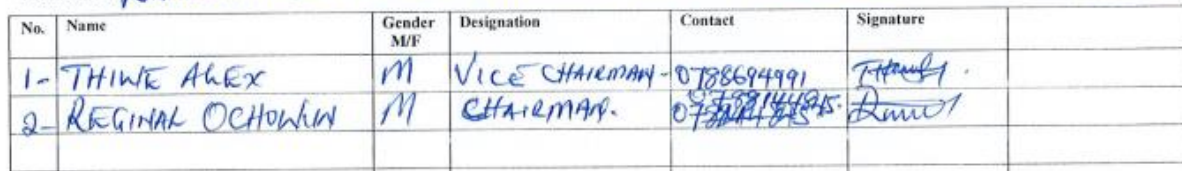 No. Name Gender M/F Designation Contact Signature
1- THINE ALEX M VICE CHAIRMAN - 0788694991
2- REGINAL OCHOWUN M CHAIRMAN.